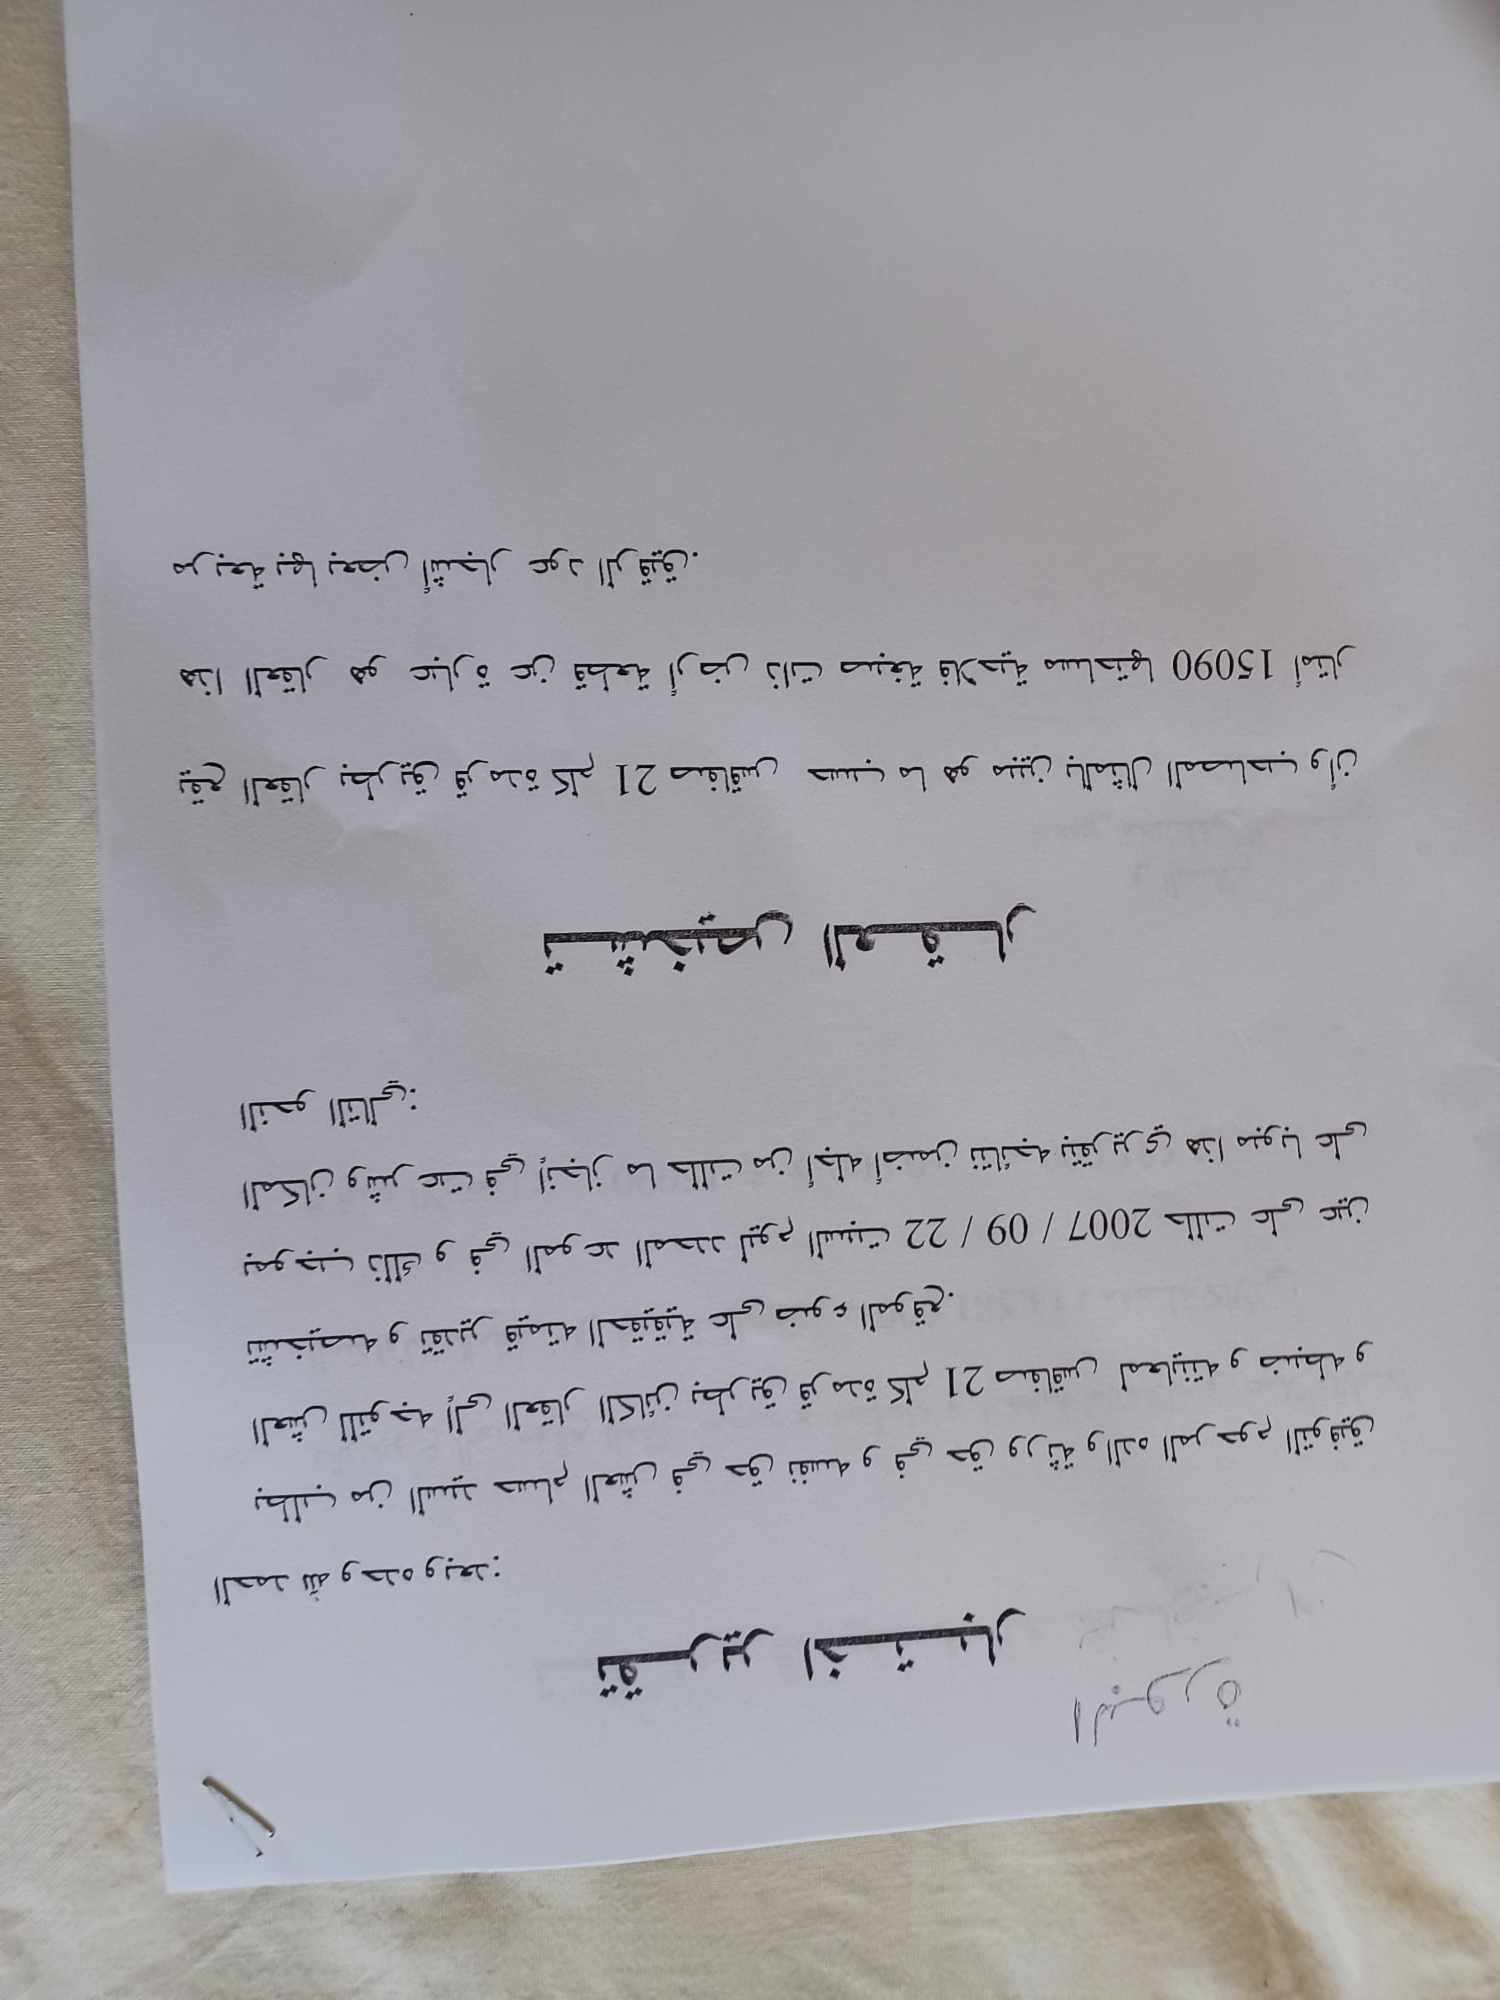 البورة
تقرير اختبار
الحمد لله وحده وبعد:
بطلب من السيد حسام العش في حق نفسه و في حق ورثة والده المرحوم التوفيق
العش للتوجه إلى العقار الكائن بطريق قرمدة كلم 21 صفاقس لمعاينته و ضبطه و
تشخيصه و تقدير قيمته الحقيقية على ضوء الموقع.
بموجب ذلك و في الموعد المحدد ليوم السبت 22 / 09 / 2007 حللت على عين
المكان وشرعت في إنجاز ما حللت من أجله أضمن نتائجه بتقريري هذا مبوبا على
النحو التالي:
تشخيص العقار
يقع العقار بطريق قرمدة كلم 21 صفاقس حسب ما هو مبين بالمثال المصاحب وأن
هذا العقار هو عبارة عن قطعة أرض ذات صبغة فلاحية مساحتها 15090 أمتار
مربعة بها بعض أشجار عود الرقيق.